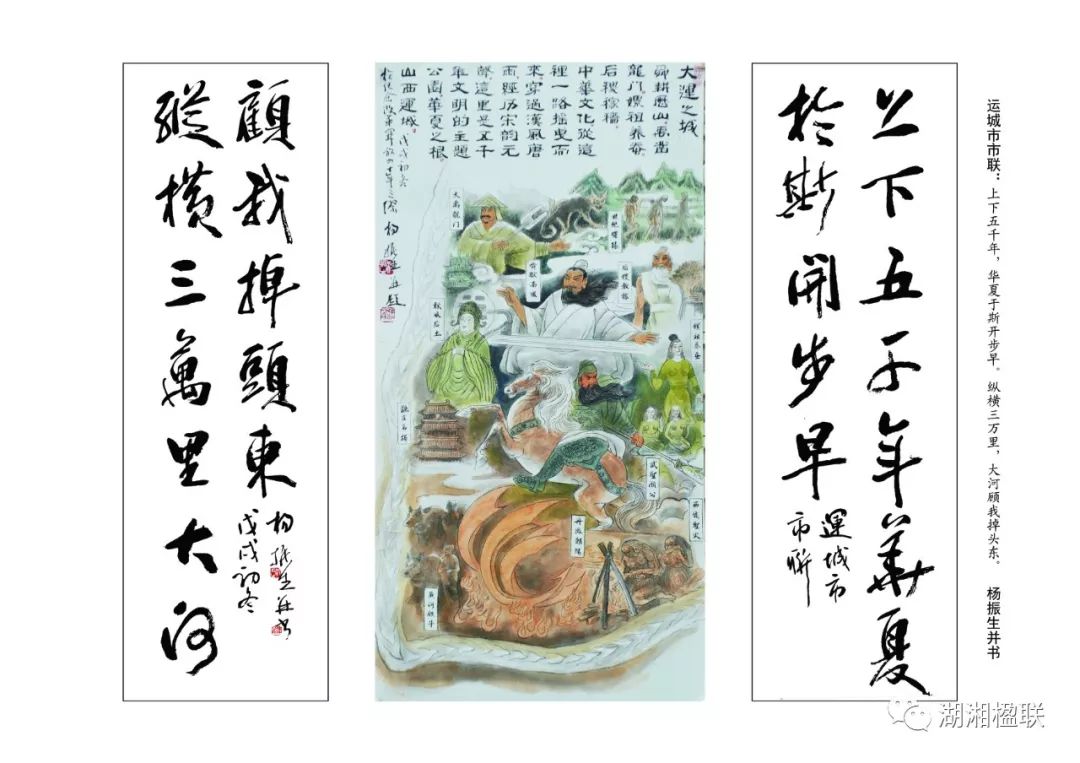 运城市市联：上下五千年，华夏于斯开步早。纵横三万里，大河顾我掉头东。 杨振生并书
上下五千年華夏
於斯開步早
運城市
市聯
大運之城
舜耕歷山禹鑿
龍门嫘祖養蠶
后稷稼穡
中華文化從這
裡一路搖曳而
來穿過漢風唐
雨經历宋韵元
聲這里是五千
年文明的主題
公園華夏之根
山西運城。戊戌初冬
杨振生并題
大禹龍门
后稷教稼
嫘祖养蚕
武聖關公
縱橫三萬里大河
顧我掉頭東
杨振生并书
戊戌初冬
湖湘楹联